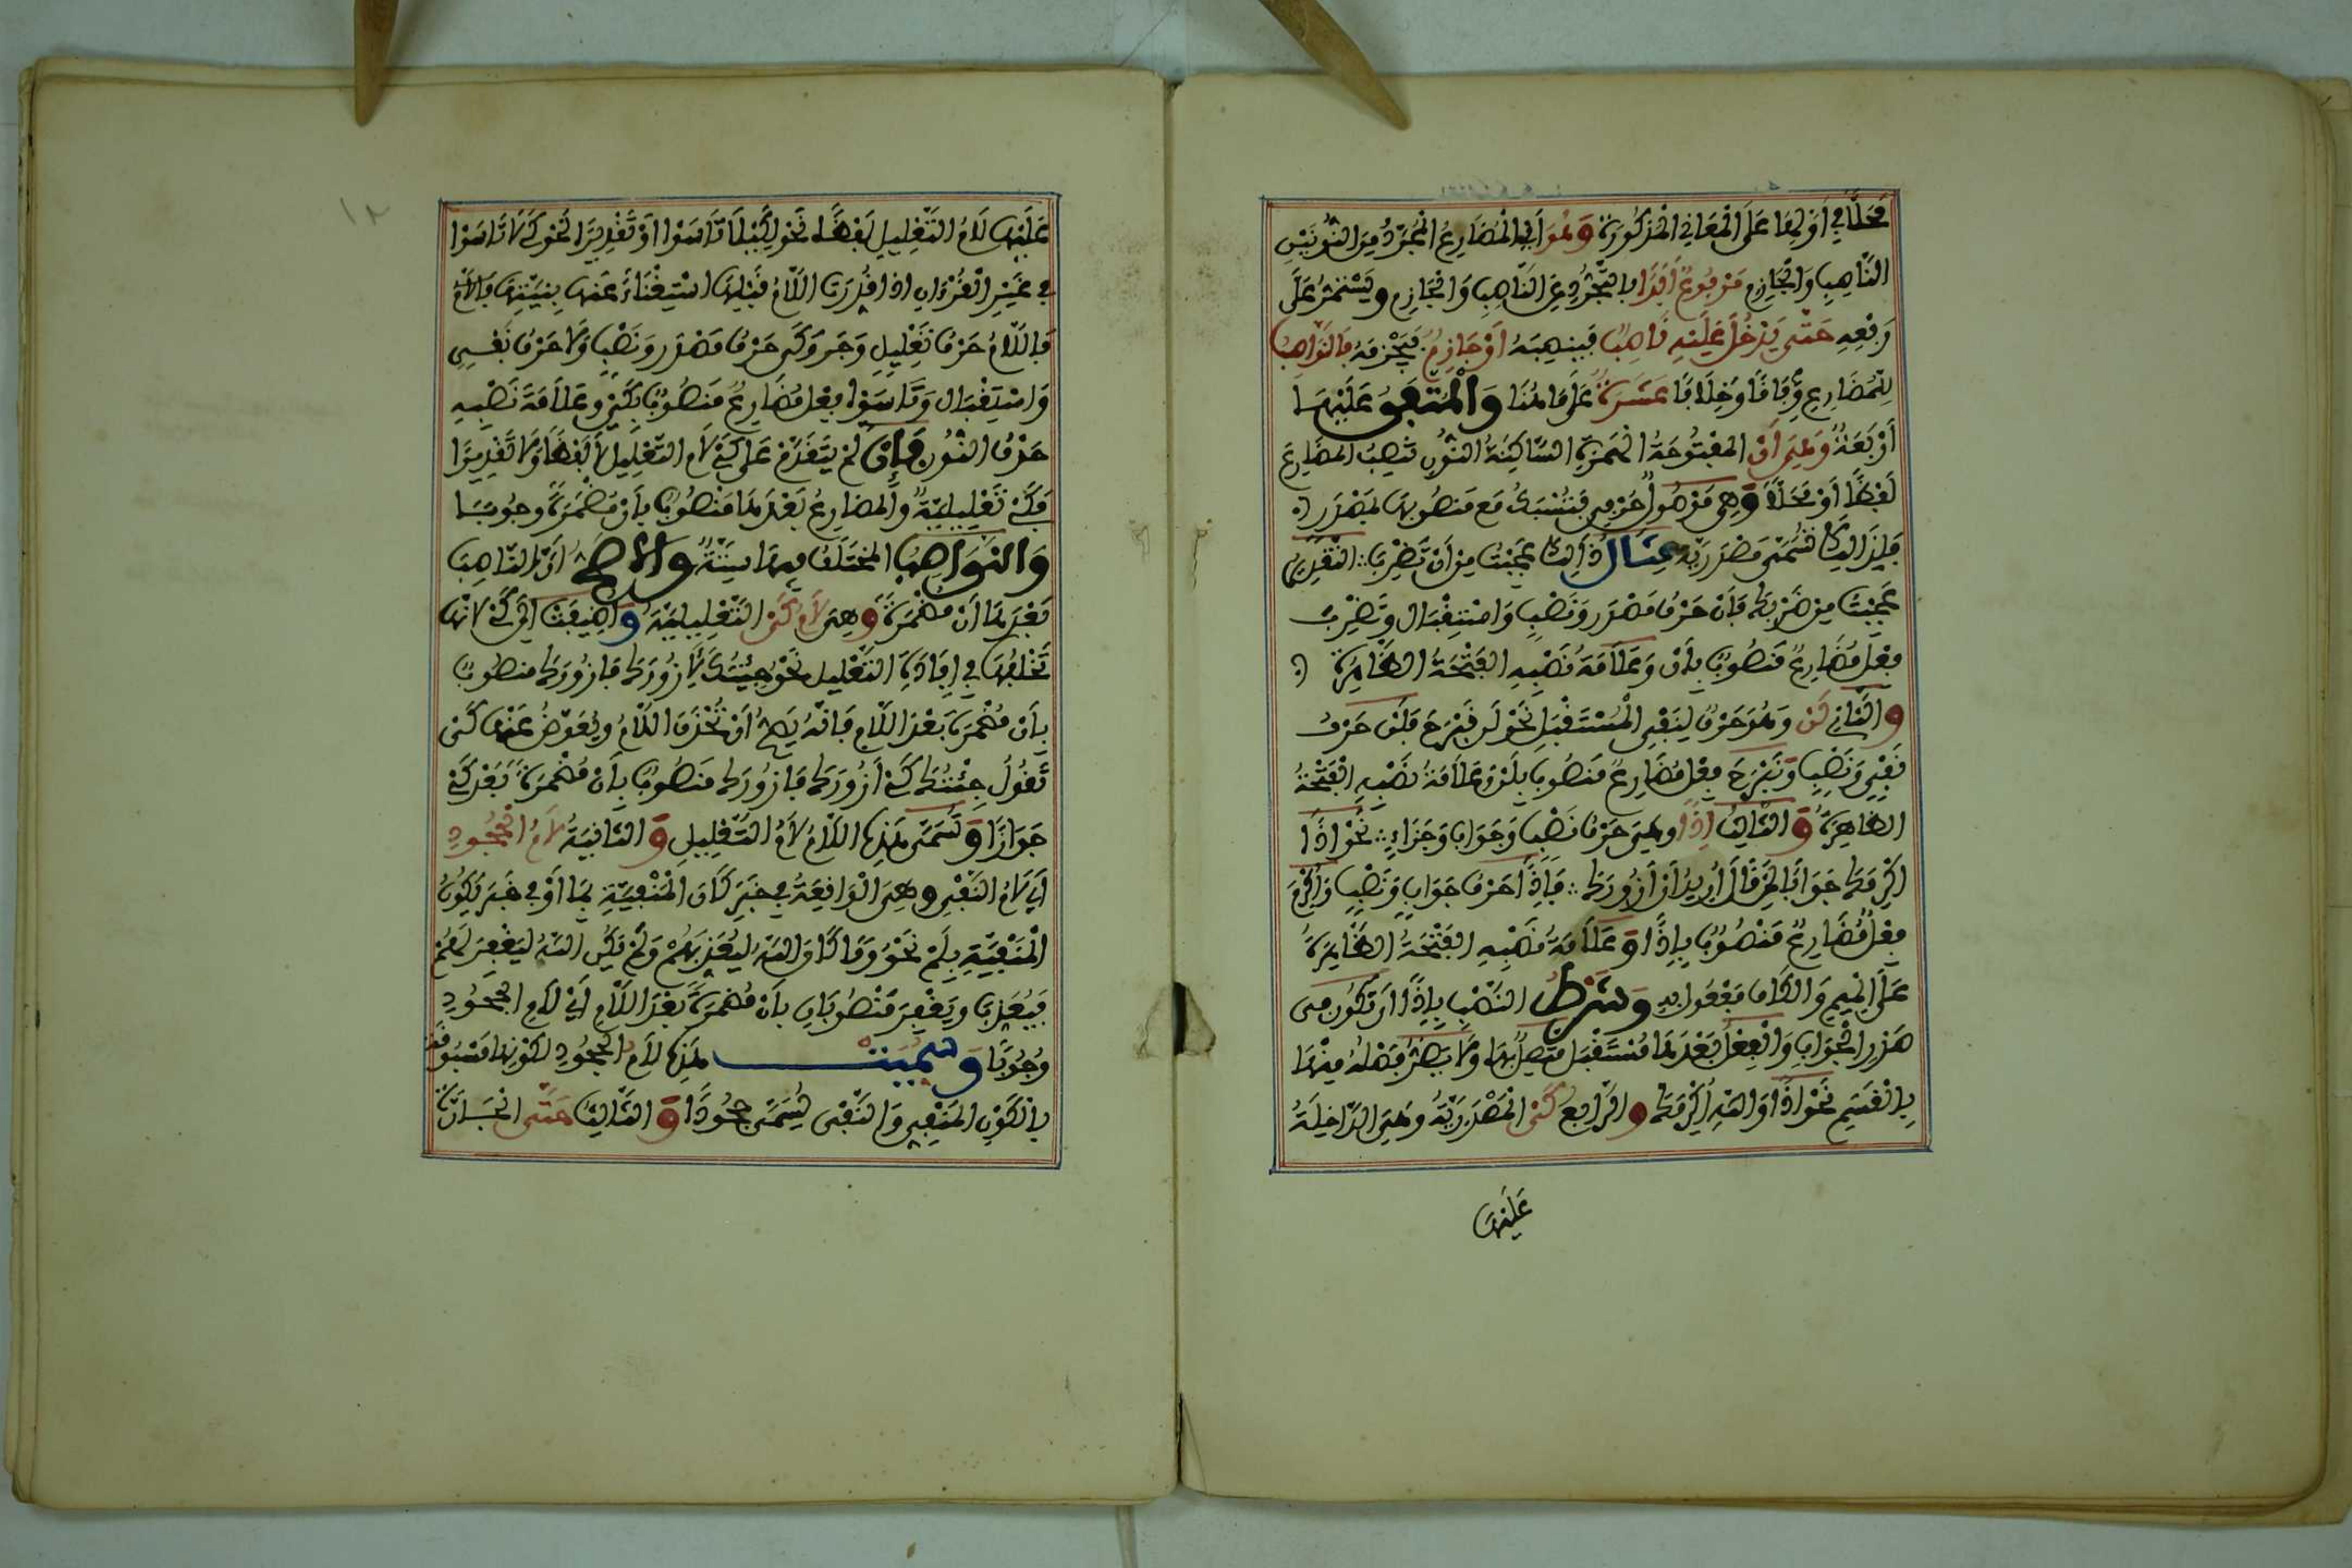 مَحَلًّا فِي أَوَّلِهَا عَلَى الْمَعَانِي الْمَذْكُورَةِ وَهُوَ أَيِ الْمُضَارِعُ الْمُجَرَّدُ مِنَ النُّونَيْنِ
النَّاصِبِ وَالْجَازِمِ مَرْفُوعٌ أَبَدًا بِالتَّجَرُّدِ عَنِ النَّاصِبِ وَالْجَازِمِ وَيَسْتَمِرُّ عَلَى
رَفْعِهِ حَتَّى يَدْخُلَ عَلَيْهِ نَاصِبٌ فَيَنْصِبَهُ أَوْ جَازِمٌ فَيَجْزِمَهُ فَالنَّوَاصِبُ
لِلْمُضَارِعِ وِفَاقًا وَخِلَافًا عَشَرَةٌ عَلَى مَا هُنَا وَالْمُتَّفَقُ عَلَيْهَا
أَرْبَعَةٌ وَهِيَ أَنْ الْمَفْتُوحَةُ الْهَمْزَةِ السَّاكِنَةُ النُّونِ تَنْصِبُ الْمُضَارِعَ
لَفْظًا أَوْ مَحَلًّا وَهِيَ مَوْصُولٌ حَرْفِي فَتُسْبَكُ مَعَ مَنْصُوبِهَا بِمَصْدَرٍ
فَلِذَالِكَ تُسَمَّى مَصْدَرِيَّةً مِثَالُ ذَالِكَ عَجِبْتُ مِنْ أَنْ تَضْرِبَ التَّقْدِيرُ
عَجِبْتُ مِنْ ضَرْبِكَ فَأَنْ حَرْفُ مَصْدَرٍ وَنَصْبٍ وَاسْتِقْبَالٍ وَتَضْرِبَ
فِعْلٌ مُضَارِعٌ مَنْصُوبٌ بِأَنْ وَعَلَامَةُ نَصْبِهِ الْفَتْحَةُ الظَّاهِرَةُ
وَالثَّانِي لَنْ وَهُوَ حَرْفٌ لِنَفْيِ الْمُسْتَقْبَلِ نَحْوُ لَنْ نَبْرَحَ فَلَنْ حَرْفُ
نَفْيٍ وَنَصْبٍ وَنَبْرَحَ فِعْلٌ مُضَارِعٌ مَنْصُوبٌ بِلَنْ وَعَلَامَةُ نَصْبِهِ الْفَتْحَةُ
الظَّاهِرَةُ وَالثَّالِثُ إِذًا وَهِيَ حَرْفُ نَصْبٍ وَجَوَابٍ وَجَزَاءٍ نَحْوُ إِذًا
أُكْرِمَكَ جَوَابًا لِمَنْ قَالَ أُرِيدُ أَنْ أَزُورَكَ فَإِذًا حَرْفُ جَوَابٍ وَنَصْبٍ وَأُكْرِمَ
فِعْلٌ مُضَارِعٌ مَنْصُوبٌ بِإِذًا وَعَلَامَةُ نَصْبِهِ الْفَتْحَةُ الظَّاهِرَةُ
عَلَى الْمِيمِ وَالْكَافُ مَفْعُولٌ بِهِ وَشَرْطُ النَّصْبِ بِإِذًا أَنْ تَكُونَ فِي
صَدْرِ الْجَوَابِ وَالْفِعْلُ بَعْدَهَا مُسْتَقْبَلٌ مُتَّصِلٌ بِهَا وَلَا يَضُرُّ فَصْلُهُ مِنْهَا
بِالْقَسَمِ نَحْوُ إِذًا وَاللهِ أُكْرِمَكَ وَالرَّابِعُ كَيْ الْمَصْدَرِيَّةُ وَهِيَ الدَّاخِلَةُ
عَلَيْهَا
١٢
عَلَيْهَا لَامُ التَّعْلِيلِ لَفْظًا نَحْوُ لِكَيْلَا تَأْسَوْا أَوْ تَقْدِيرًا نَحْوُ كَيْ لَا تَأْسَوْا
فِي غَيْرِ الْقُرْءَانِ إِذَا قُدِّرَتِ اللَّامُ قَبْلَهَا اسْتِغْنَاءً عَنْهَا بِنِيَّتِهَا
فَاللَّامُ حَرْفُ تَعْلِيلٍ وَجَرٍّ وَكَيْ حَرْفُ مَصْدَرٍ وَنَصْبٍ وَلَا حَرْفُ نَفْيٍ
وَاسْتِقْبَالٍ وَتَأْسَوْا فِعْلٌ مُضَارِعٌ مَنْصُوبٌ بِكَيْ وَعَلَامَةُ نَصْبِهِ
حَذْفُ النُّونِ فَإِنْ لَمْ يَتَقَدَّمْ عَلَى كَيْ لَامُ التَّعْلِيلِ لَا لَفْظًا وَلَا تَقْدِيرًا
فَكَيْ تَعْلِيلِيَّةٌ وَالْمُضَارِعُ بَعْدَهَا مَنْصُوبٌ بِأَنْ مُضْمَرَةً وُجُوبًا
وَالنَّوَاصِبُ الْمُخْتَلَفُ فِيهَا سِتَّةٌ وَالْأَصَحُّ أَنَّ النَّاصِبَ
بَعْدَهَا أَنْ مُضْمَرَةً وَهِيَ لَامُ كَيْ التَّعْلِيلِيَّةِ وَأُضِيفَتْ إِلَى كَيْ لِأَنَّهَا
تَخْلُفُهَا فِي إِفَادَةِ التَّعْلِيلِ نَحْوُ جِئْتُكَ لِأَزُورَكَ فَأَزُورَكَ مَنْصُوبٌ
بِأَنْ مُضْمَرَةً بَعْدَ اللَّامِ فَإِنَّهُ يَصِحُّ أَنْ تُحْذَفَ اللَّامُ وَيُعَوَّضَ عَنْهَا كَيْ
تَقُولُ جِئْتُكَ كَيْ أَزُورَكَ فَأَزُورَكَ مَنْصُوبٌ بِأَنْ مُضْمَرَةً بَعْدَ كَيْ
جَوَازًا وَتُسَمَّى هَذِهِ اللَّامُ لَامُ التَّعْلِيلِ وَالثَّانِيَةُ لَامُ الْجُحُودِ
أَيْ لَامُ النَّفْيِ وَهِيَ الْوَاقِعَةُ فِي خَبَرِ كَانَ الْمَنْفِيَّةِ بِمَا أَوْ فِي خَبَرِ يَكُونُ
الْمَنْفِيَّةِ بِلَمْ نَحْوُ وَمَا كَانَ اللهُ لِيُعَذِّبَهُمْ وَلَمْ يَكُنِ اللهُ لِيَغْفِرَ لَهُمْ
فَيُعَذِّبَ وَيَغْفِرَ مَنْصُوبَانِ بِأَنْ مُضْمَرَةً بَعْدَ اللَّامِ أَيْ لَامِ الْجُحُودِ
وُجُوبًا وَسُمِّيَتْ هَذِهِ لَامُ الْجُحُودِ لِكَوْنِهَا مَسْبُوقَةً
بِالْكَوْنِ الْمَنْفِي وَالنَّفْيُ يُسَمَّى جُحُودًا وَالثَّالِثُ حَتَّى الْجَارَّةُ